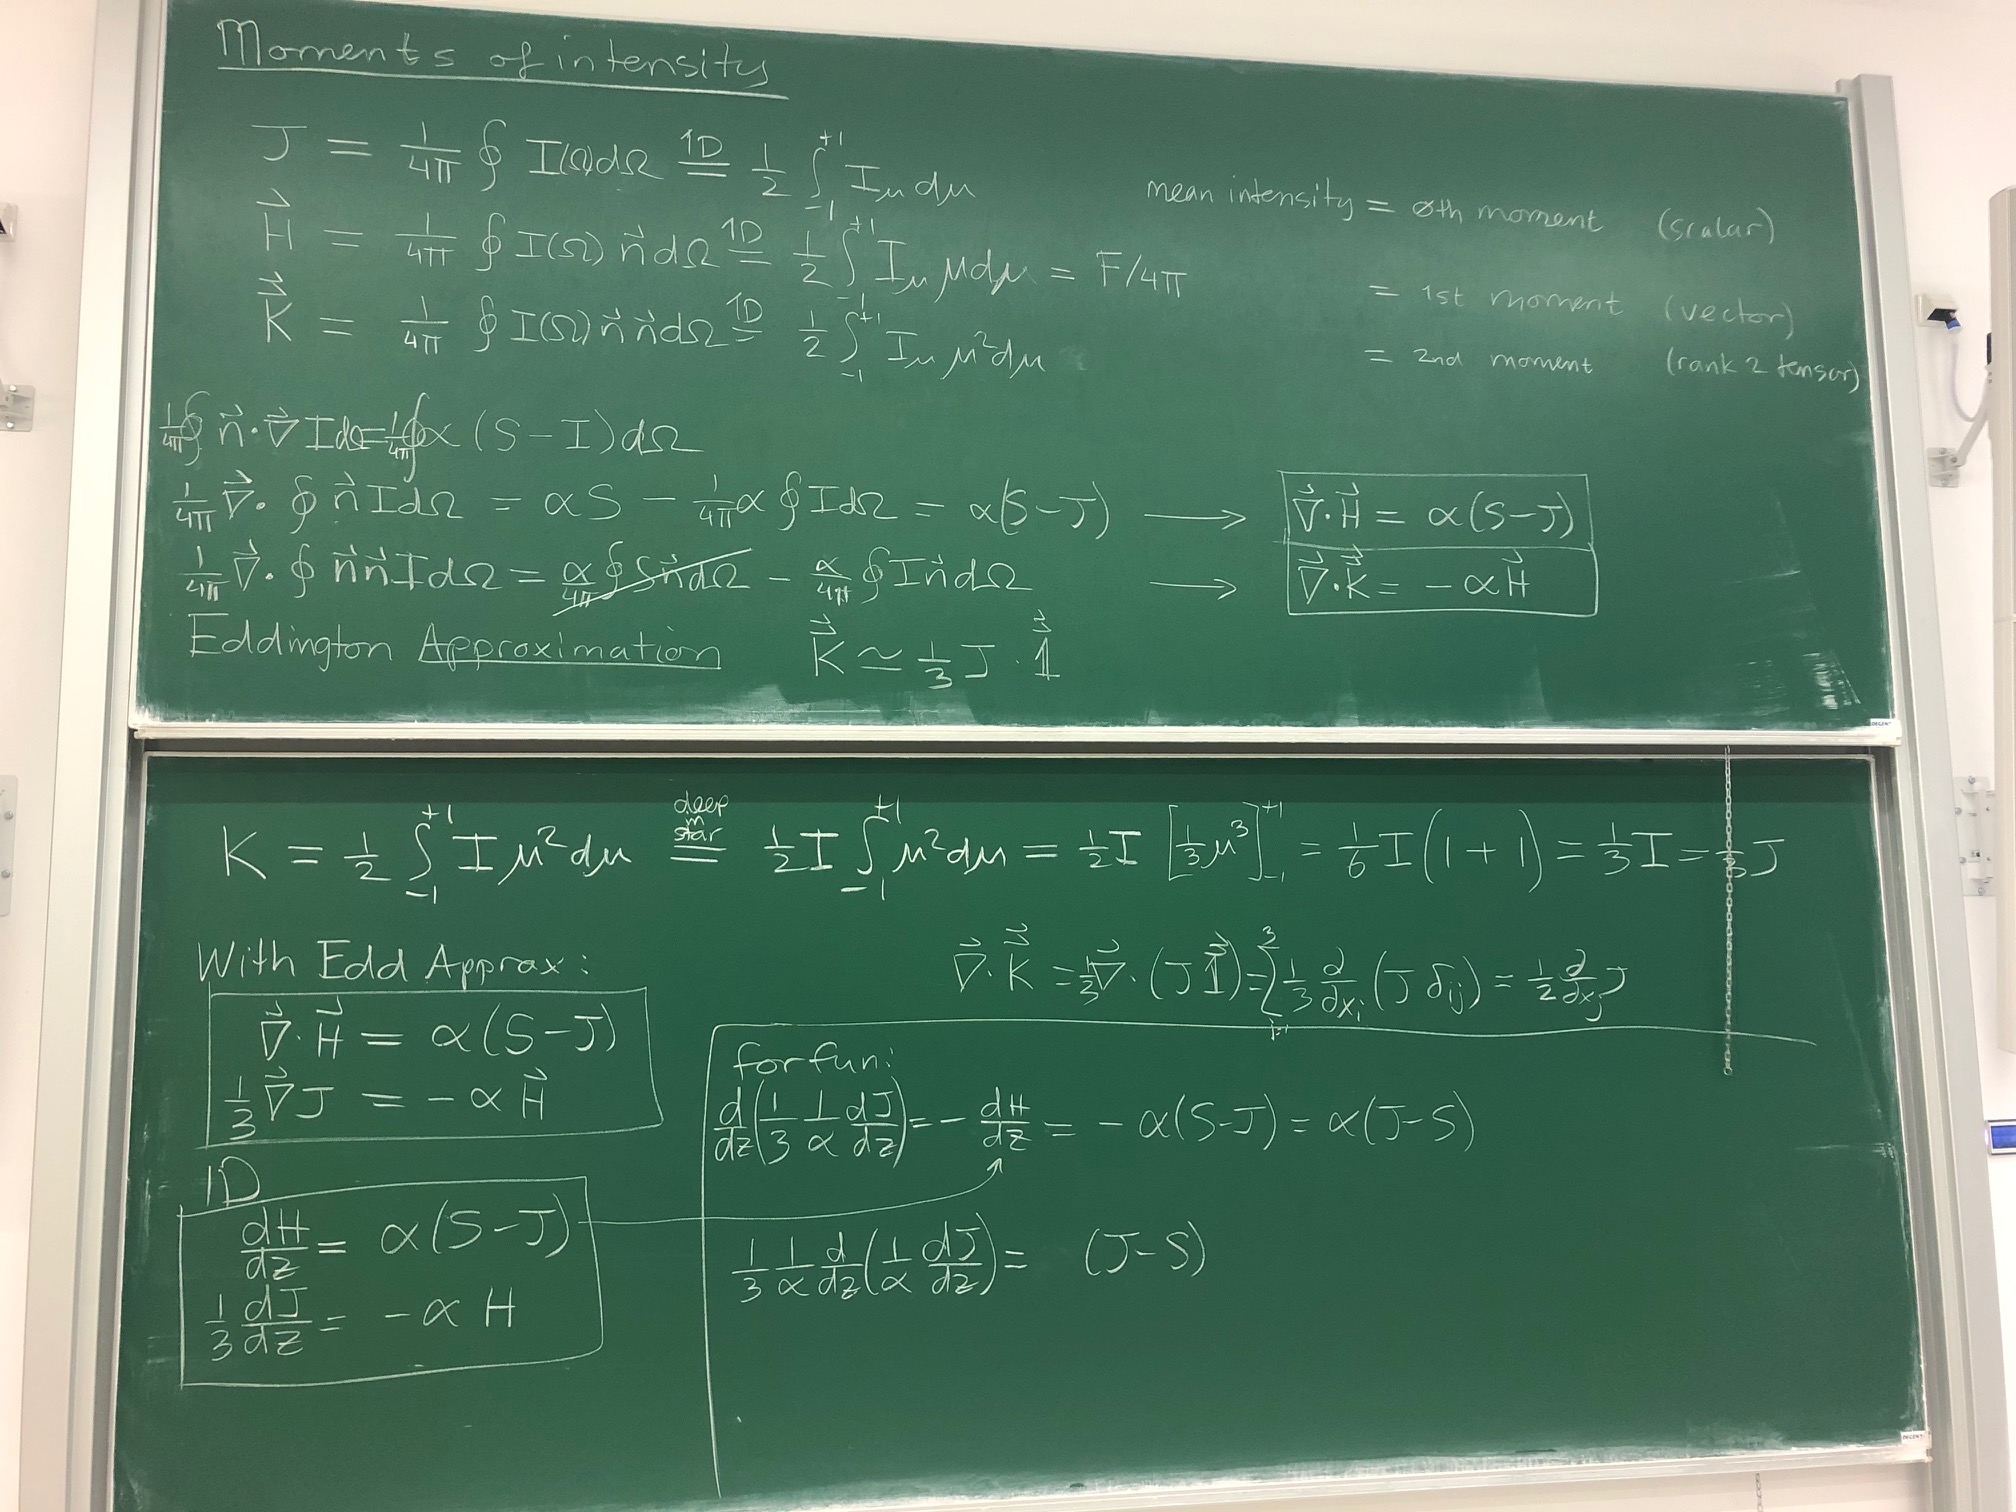 Moments of intensity
J = 1/4π ∮ I(Ω)dΩ =(1D) 1/2 ∫₋₁⁺¹ I_μ dμ   mean intensity = 0th moment (scalar)
H⃗ = 1/4π ∮ I(Ω) n⃗ dΩ =(1D) 1/2 ∫₋₁⁺¹ I_μ μ dμ = F/4π   = 1st moment (vector)
K⃗⃗ = 1/4π ∮ I(Ω) n⃗ n⃗ dΩ =(1D) 1/2 ∫₋₁⁺¹ I_μ μ² dμ   = 2nd moment (rank 2 tensor)
1/4π ∮ n⃗·∇⃗ I dΩ = 1/4π ∮ α (S-I) dΩ
1/4π ∇⃗· ∮ n⃗ I dΩ = αS - 1/4π α ∮ I dΩ = α(S-J) ⟶ ∇⃗·H⃗ = α(S-J)
1/4π ∇⃗· ∮ n⃗ n⃗ I dΩ = α/4π ∮ S n⃗ dΩ - α/4π ∮ I n⃗ dΩ ⟶ ∇⃗·K⃗⃗ = -αH⃗
Eddington Approximation   K⃗⃗ ≃ 1/3 J · 1⃗⃗
K = 1/2 ∫₋₁⁺¹ I μ² dμ =(deep in star) 1/2 I ∫₋₁⁺¹ μ² dμ = 1/2 I [1/3 μ³]₋₁⁺¹ = 1/6 I (1+1) = 1/3 I = 1/3 J
∇⃗·K⃗⃗ = 1/3 ∇⃗·(J 1⃗⃗) = Σ³ᵢ₌₁ 1/3 ∂/∂xᵢ (J δᵢⱼ) = 1/2 ∂/∂xⱼ J
With Edd Approx:
∇⃗·H⃗ = α(S-J)
1/3 ∇⃗J = -αH⃗
1D
dH/dz = α(S-J)
1/3 dJ/dz = -αH
for fun:
d/dz(1/3 1/α dJ/dz) = - dH/dz = -α(S-J) = α(J-S)
1/3 1/α d/dz(1/α dJ/dz) = (J-S)